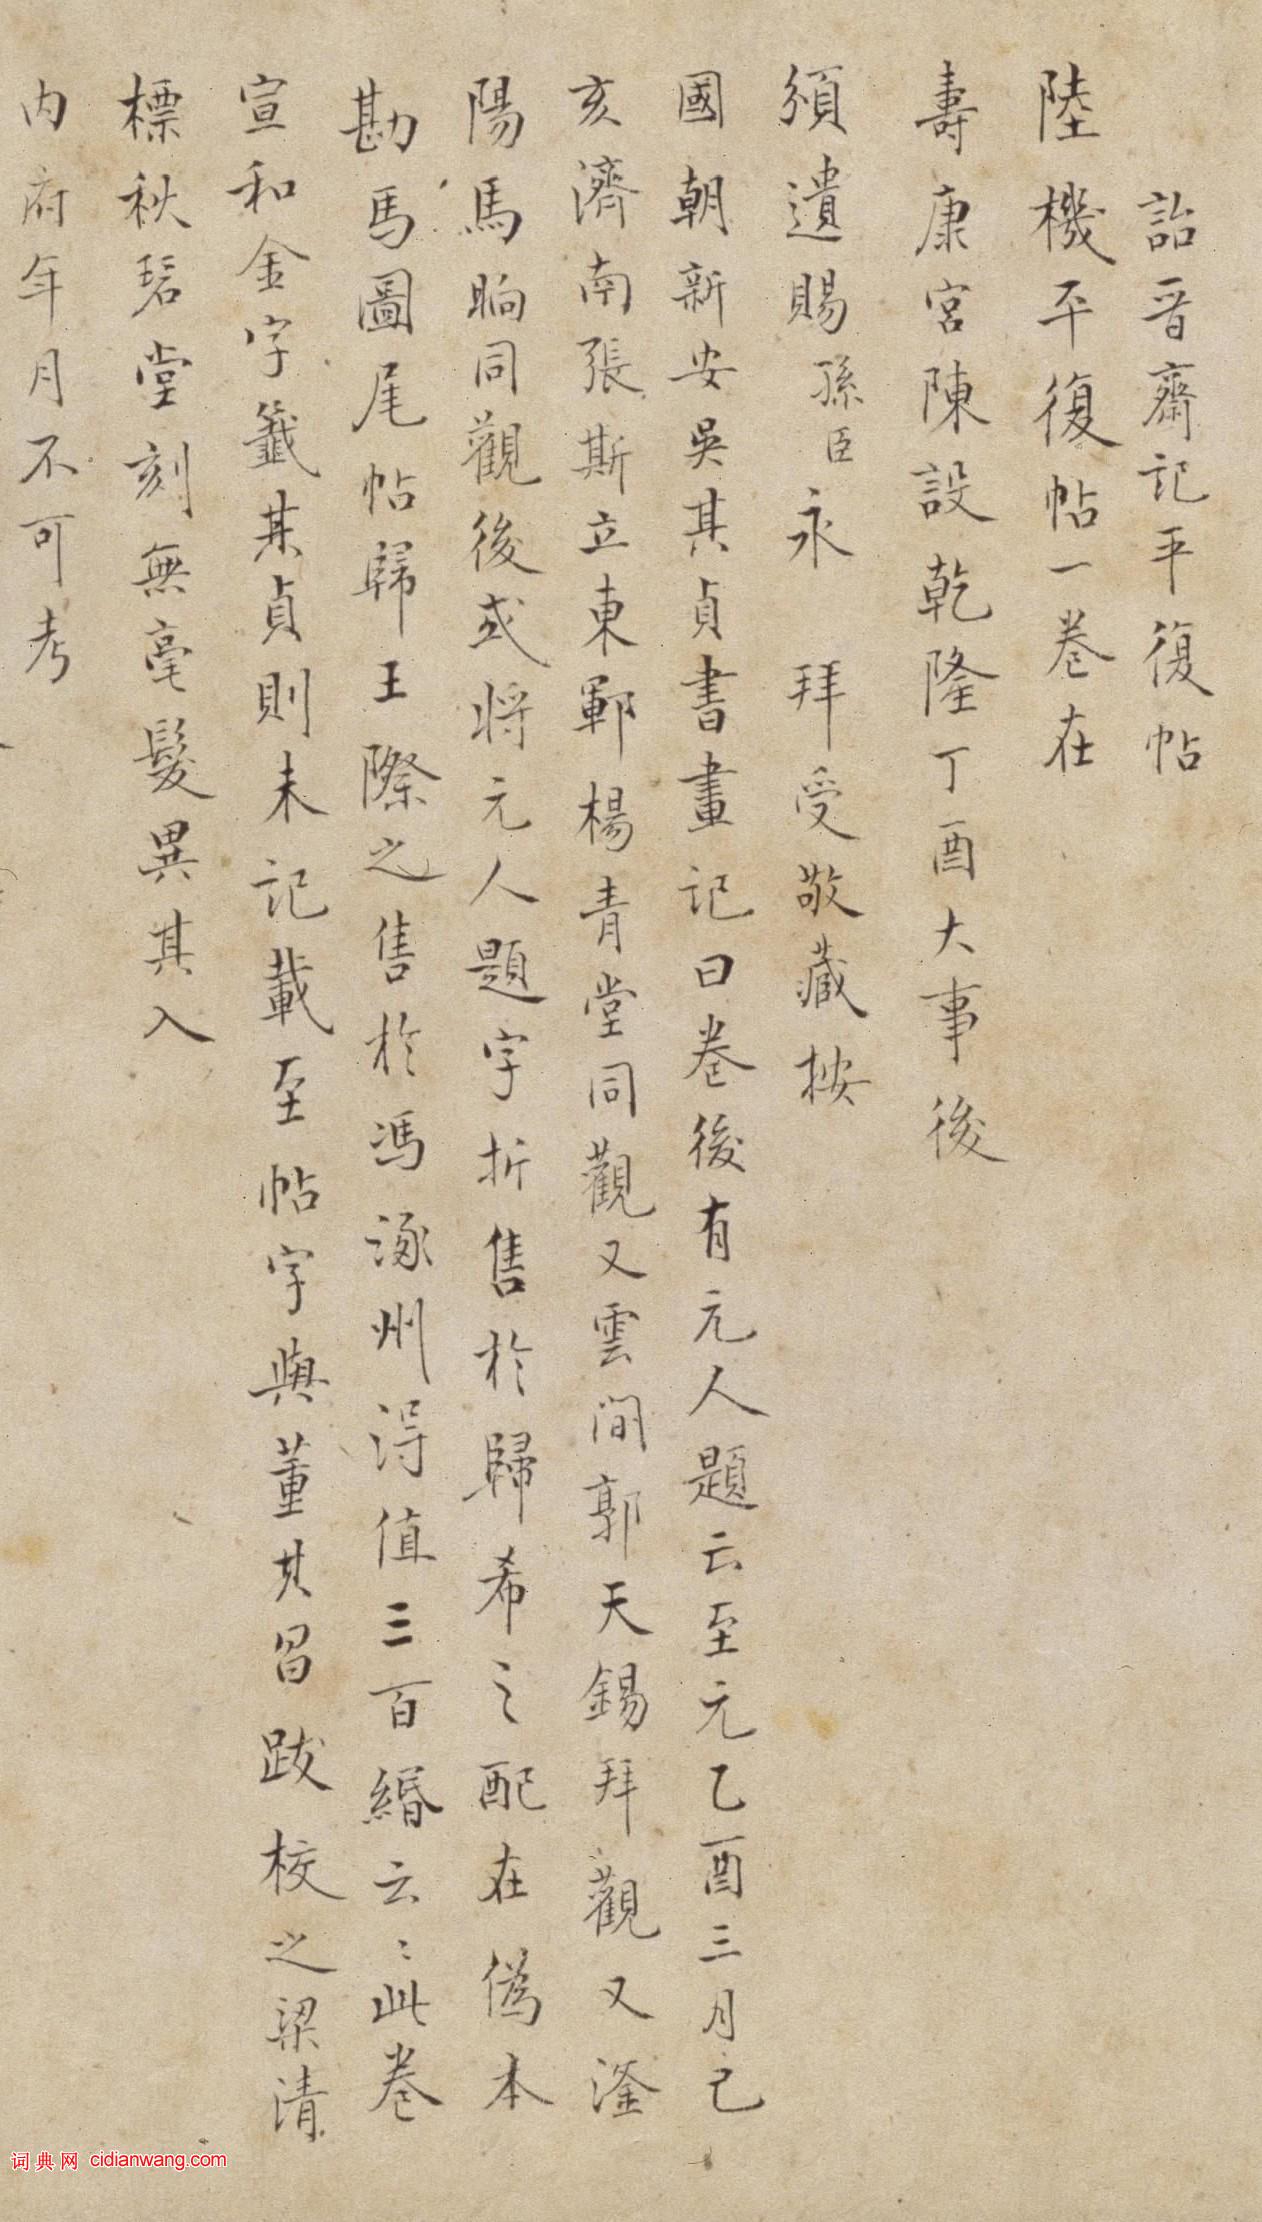 詒晉齋記平復帖
陸機平復帖一卷在
壽康宮陳設乾隆丁酉大事後
頒遺賜孫臣永 拜受敬藏按
國朝新安吳其貞書畫記曰卷後有元人題云至元乙酉三月己
亥濟南張斯立東鄆楊青堂同觀又雲間郭天錫拜觀又滏
陽馬昫同觀後或將元人題字折售於歸希之配在偽本
勘馬圖尾帖歸王際之售於馮涿州得值三百緡云〻此卷
宣和金字籤其貞則未記載至帖字與董其昌跋校之梁清
標秋碧堂刻無毫髮異其入
內府年月不可考
词典网 cidianwang.com